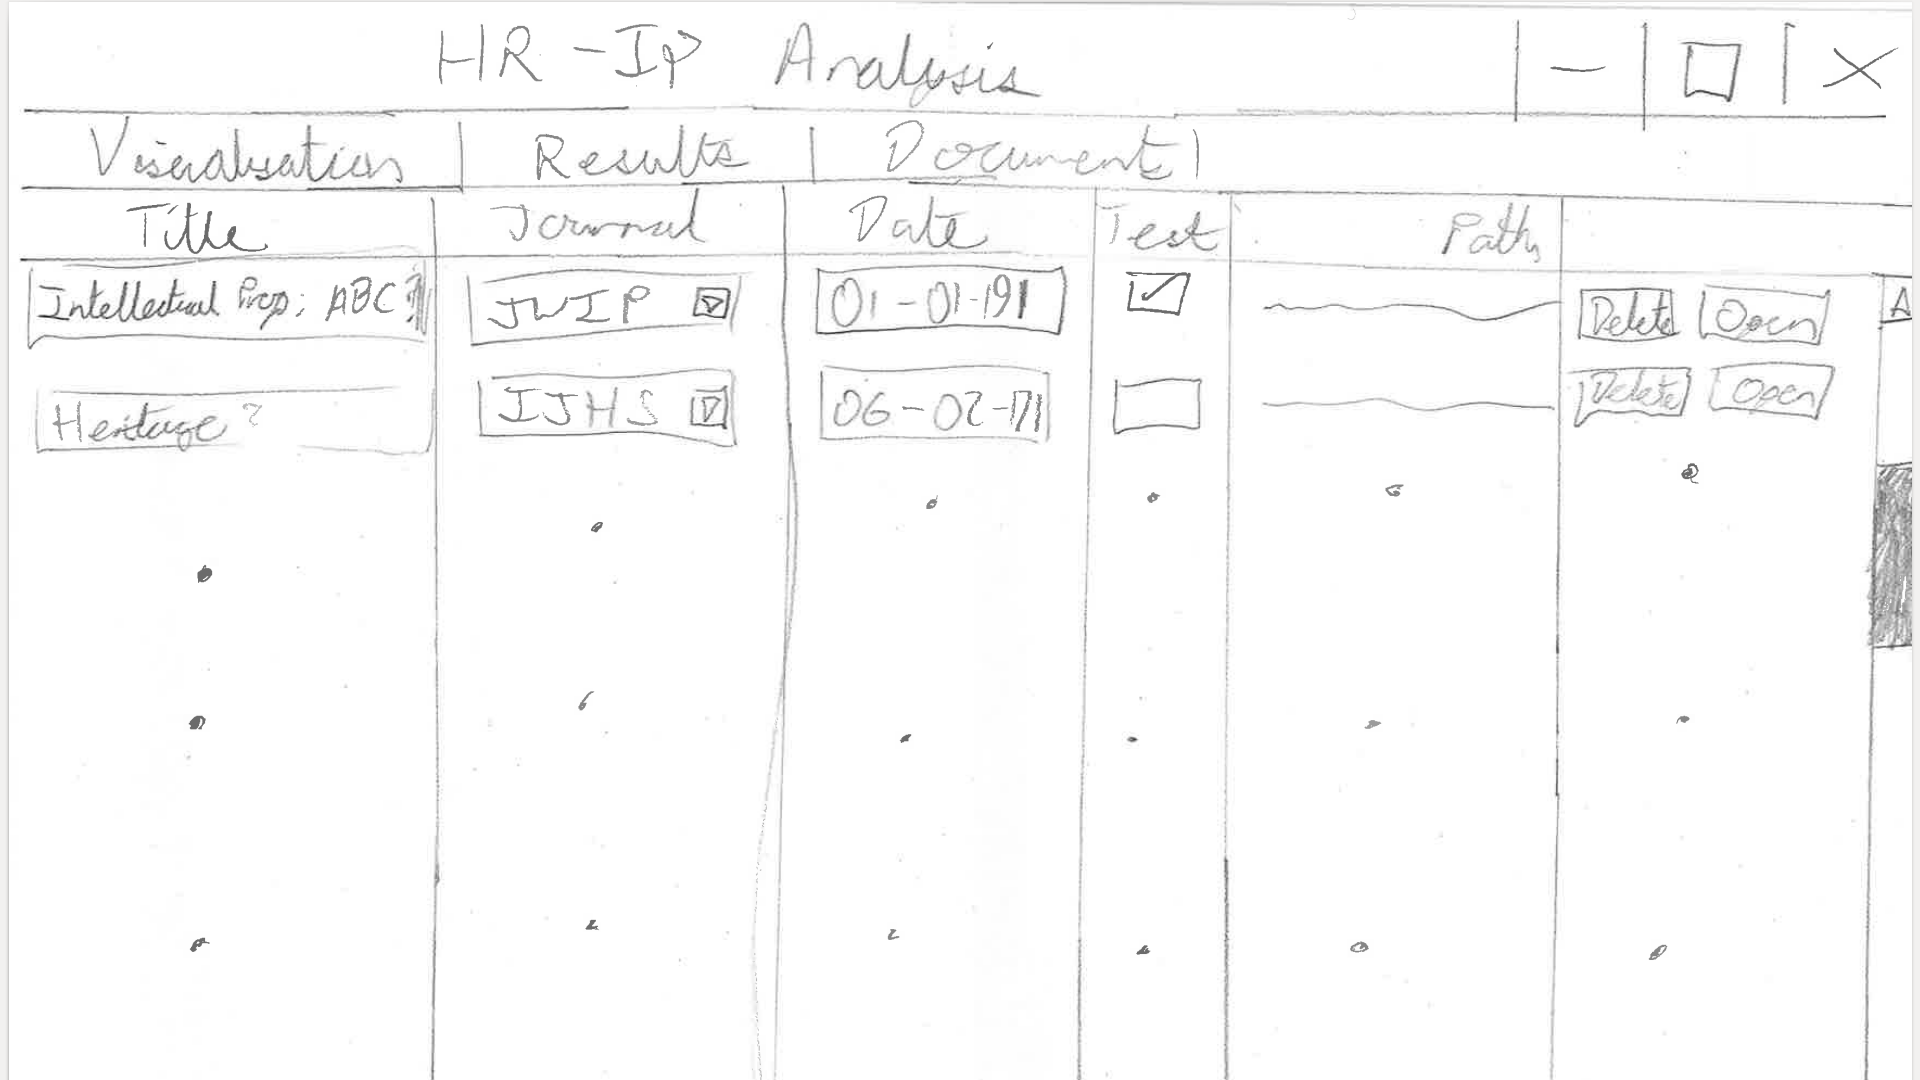 HR-IP Analysis
Visualisation Results Document
Title Journal Date Test Path
Intellectual Prop: ABC JWIP 01-01-191 Delete Open A
Heritage? IJHS 06-02-171 Delete Open